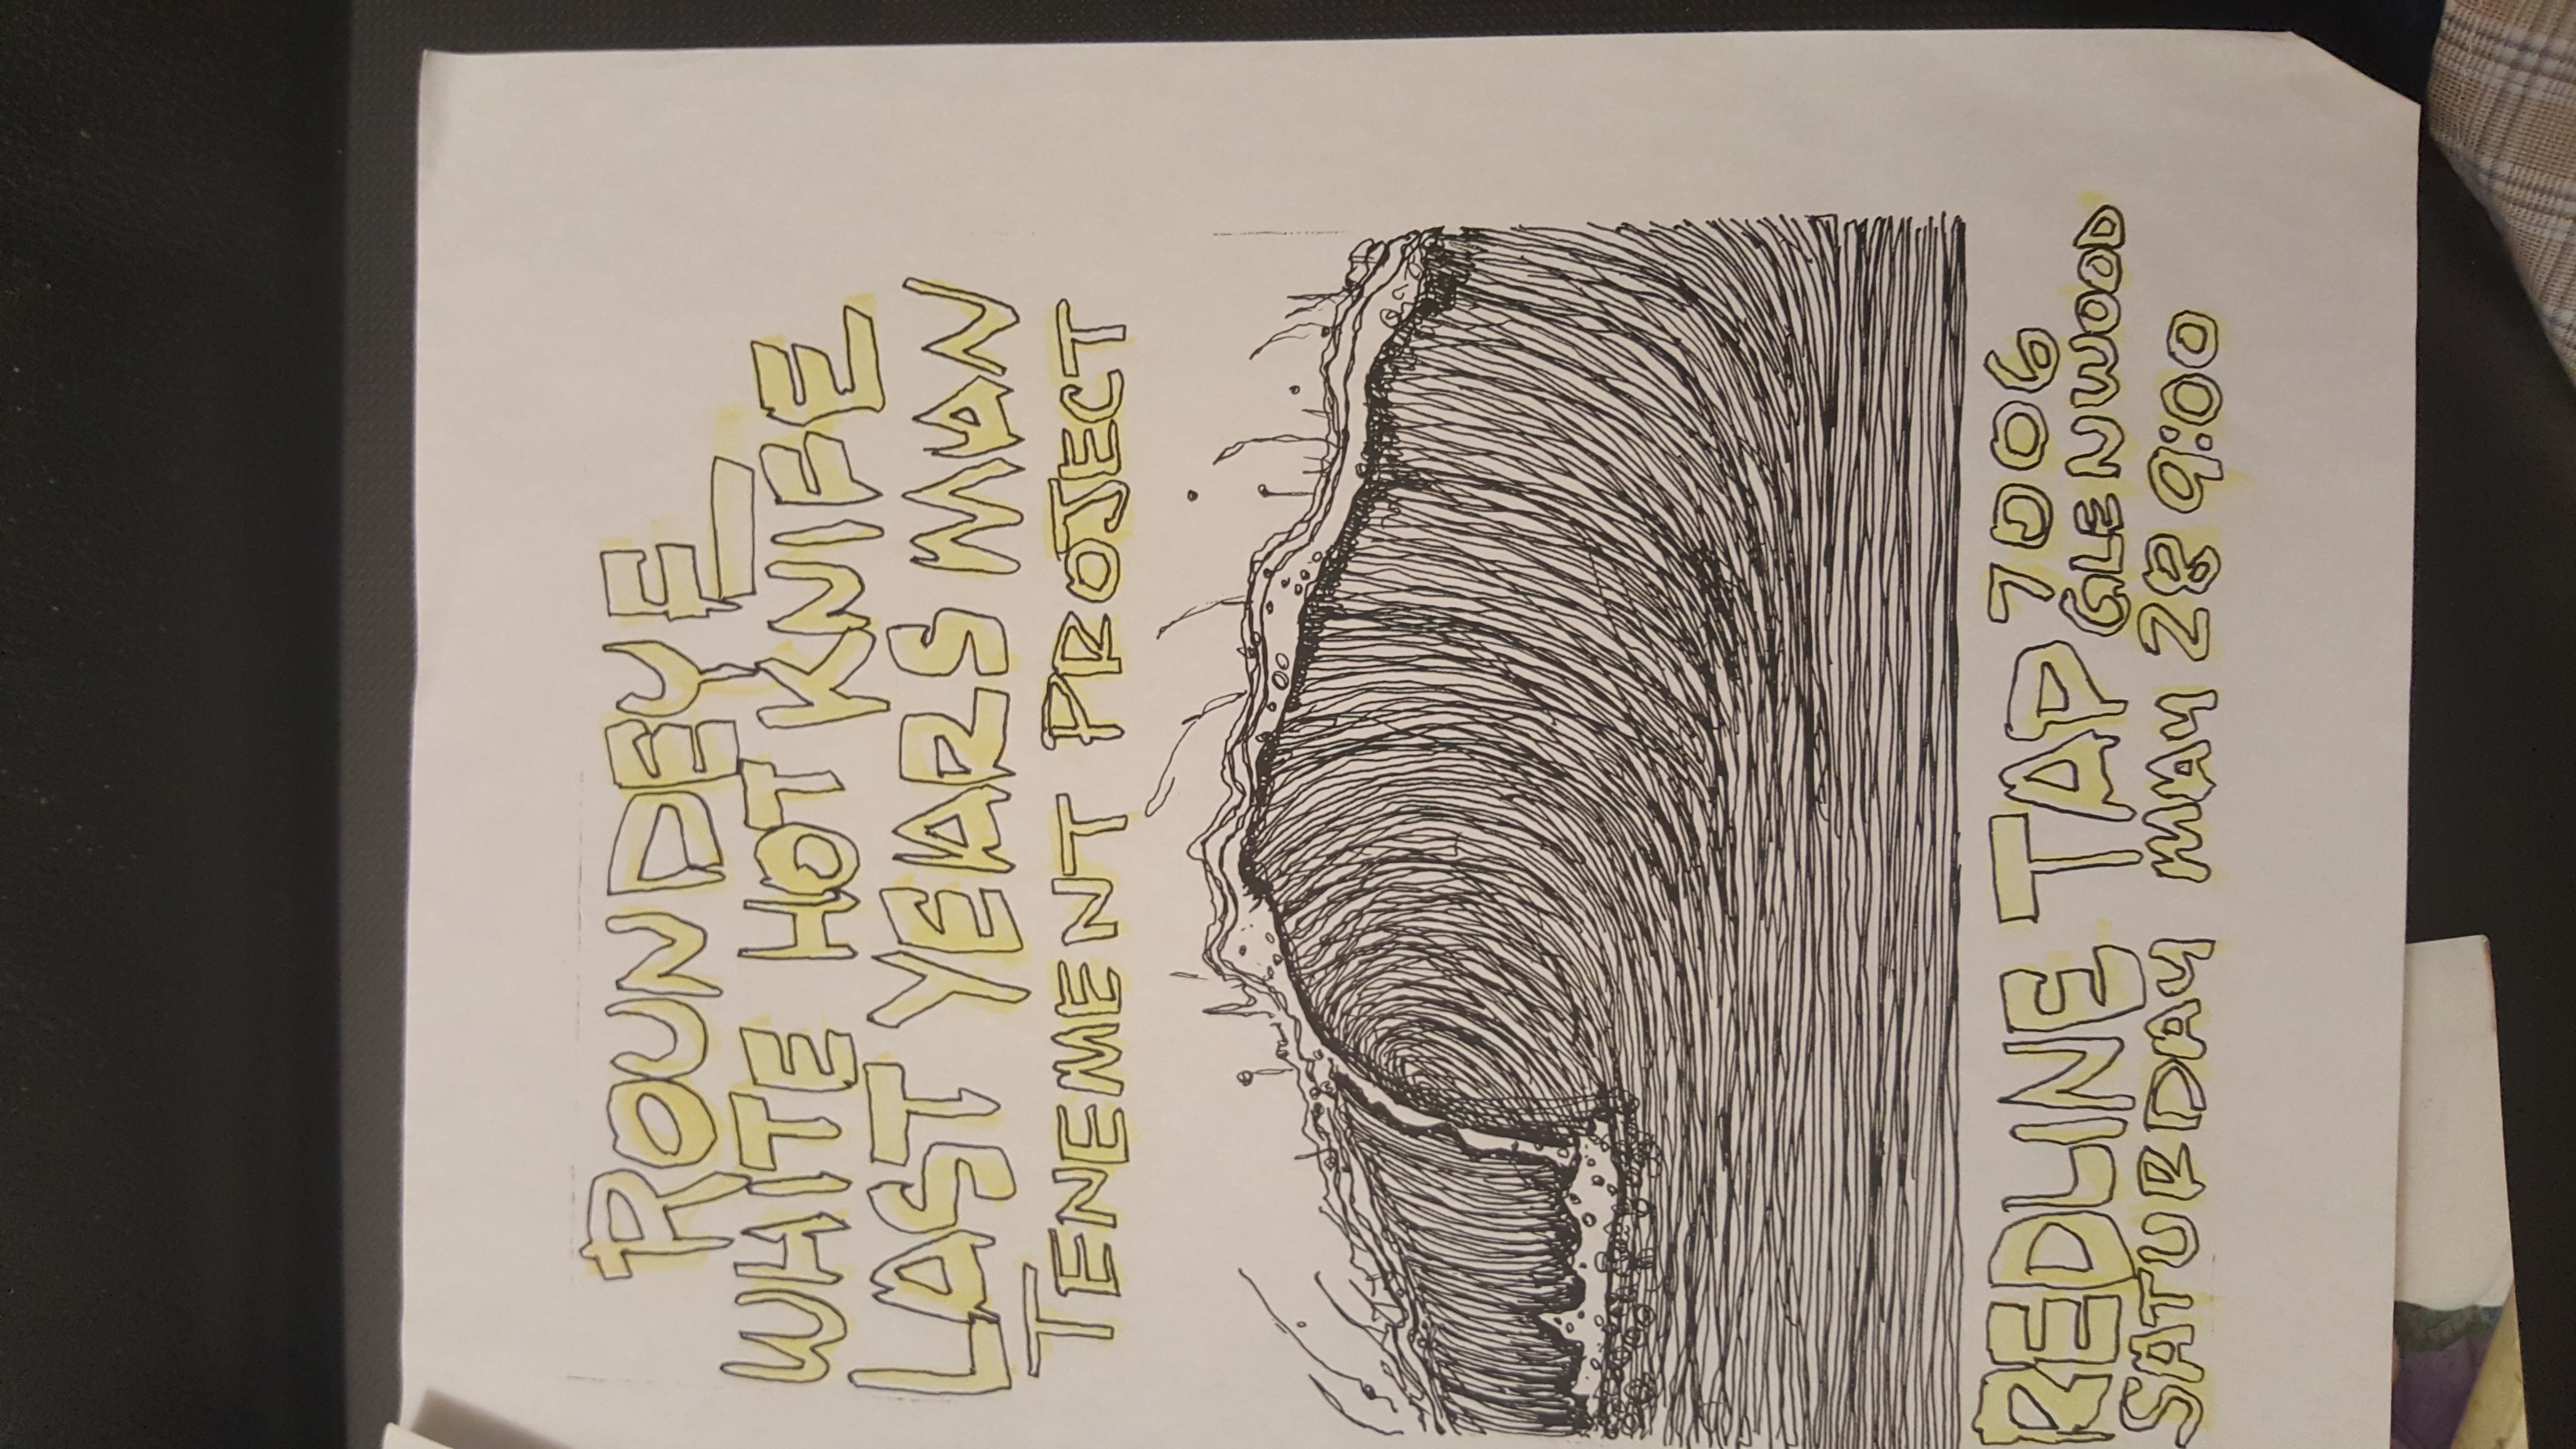 ROUNDEYE
WHITE HOT KNIFE
LAST YEARS MAN
TENEMENT PROJECT
REDLINE TAP 7006
GLENWOOD
SATURDAY MAY 28 9:00